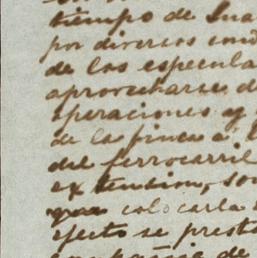 tiempo de
por diversos
de las especula
aprovecharse d
operaciones y
de la finca á
del ferrocarril
extension, so
colocarla
efecto se prest
compañia de